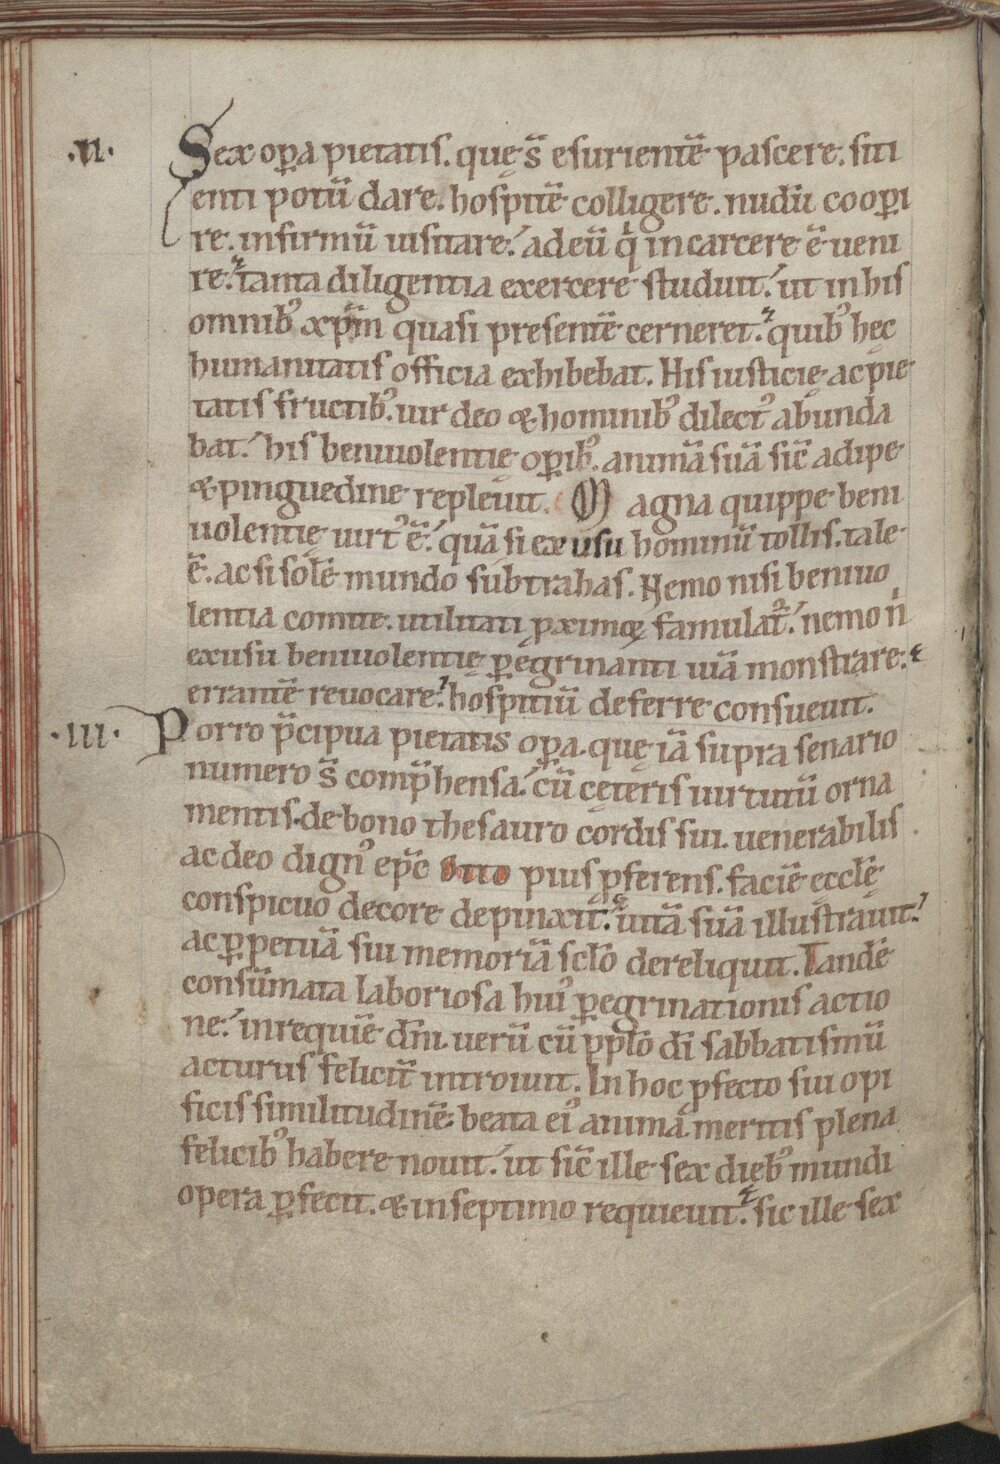 .II. Sex op̲a pietatis. quę s̄ esurientē pascere. siti
enti potū dare. hospitē colligere. nudū coop̲i
re. infirmū uisitare. ad eū q̇ in carcere ē ueni
re. tanta diligentia exercere studuit. ut in his
omnib; xp̄m quasi presentē cerneret. quib; hęc
humanitatis officia exhibebat. His iusticię ac pie
tatis fructib; uir deo & hominib; dilect᾽ abunda
bat. his beniuolentię op̲ib; animā suā sic̄ adipe
& pinguedine repleuit. Magna quippe beni
uolentię uirt᾽ ē. quā si ex usu hominū tollis. tale
ē. ac si solē mundo subtrahas. Nemo nisi beniuo
lentia comite. utilitati ꝓximoꝝ famulat᷑. nemo n̄
ex usu beniuolentię p̲egrinanti uiā monstrare.
errantē reuocare. hospitiū deferre consueuit.
.III. Porro p̄cipua pietatis op̲a. quę iā supra senario
numero s̄ comp̄hensa. cū cęteris uirtutū orna
mentis. de bono thesauro cordis sui. uenerabilis
ac deo dign᾽ ep̄c Otto pius ꝓferens. faciē ęcclę̄
conspicuo decore depinxit. uitā suā illustrauit.
ac p̲petuā sui memoriā sc̄lo dereliquit. Tandē
consūmata laboriosa hui᾽ p̲egrinationis actio
ne. in requiē dn̄i. uerū cū pp̄lo dī sabbatismū
acturus felicit̄ introiuit. In hoc ꝓfecto sui opi
ficis similitudinē beata ei᾽ anima. meritis plena
felicib; habere nouit. ut sic̄ ille sex dieb; mundi
opera p̲fecit. & in septimo requieuit. sic ille sex